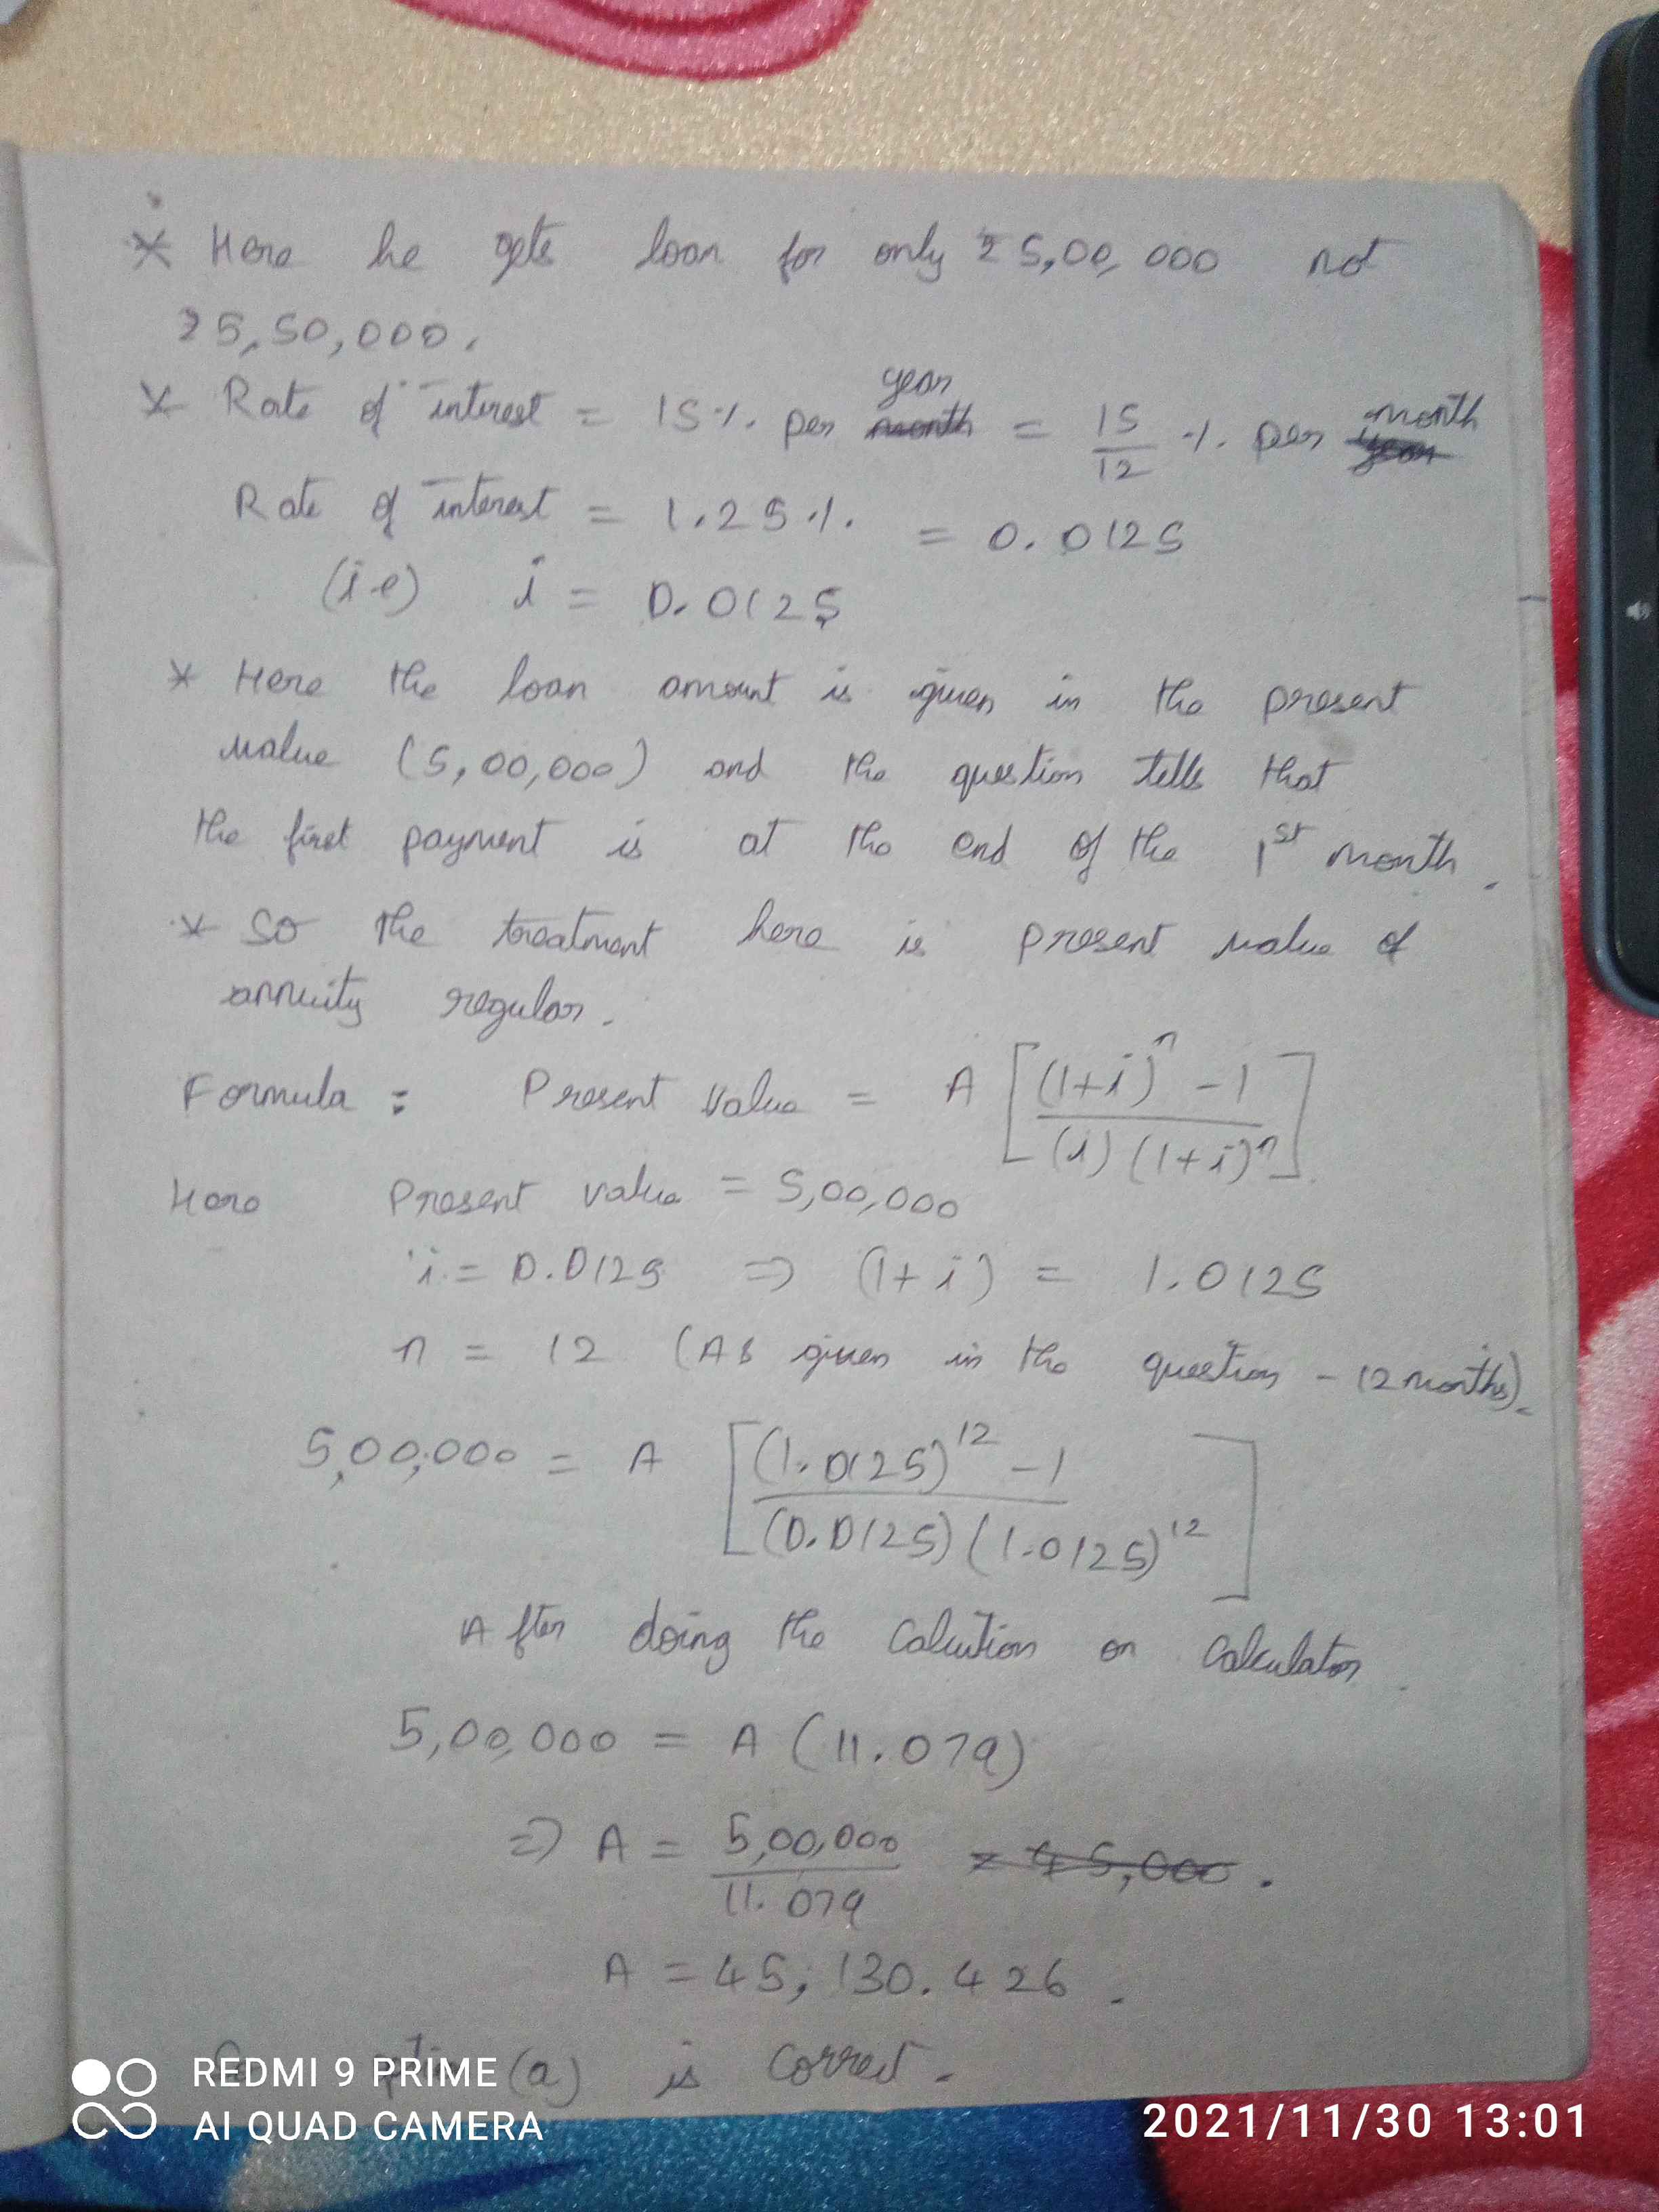 * Here he gets loan for only ₹5,00,000 not
₹5,50,000.
* Rate of interest = 15% per month year = 15/12 % per year month
Rate of interest = 1.25% = 0.0125
(i.e) i = 0.0125
* Here the loan amount is given in the present
value (5,00,000) and the question tells that
the first payment is at the end of the 1st month.
* So the treatment here is present value of
annuity regular.
Formula : Present value = A [((1+i)^n - 1)/((i)(1+i)^n)]
Here Present value = 5,00,000
i = 0.0125 ⇒ (1+i) = 1.0125
n = 12 (As given in the question - 12 months).
5,00,000 = A [((1.0125)^12 - 1)/((0.0125)(1.0125)^12)]
After doing the calcution on calculator.
5,00,000 = A (11.079)
⇒ A = 5,00,000/11.079 = 45,000.
A = 45,130.426.
(a) is correct.
REDMI 9 PRIME
AI QUAD CAMERA
2021/11/30 13:01